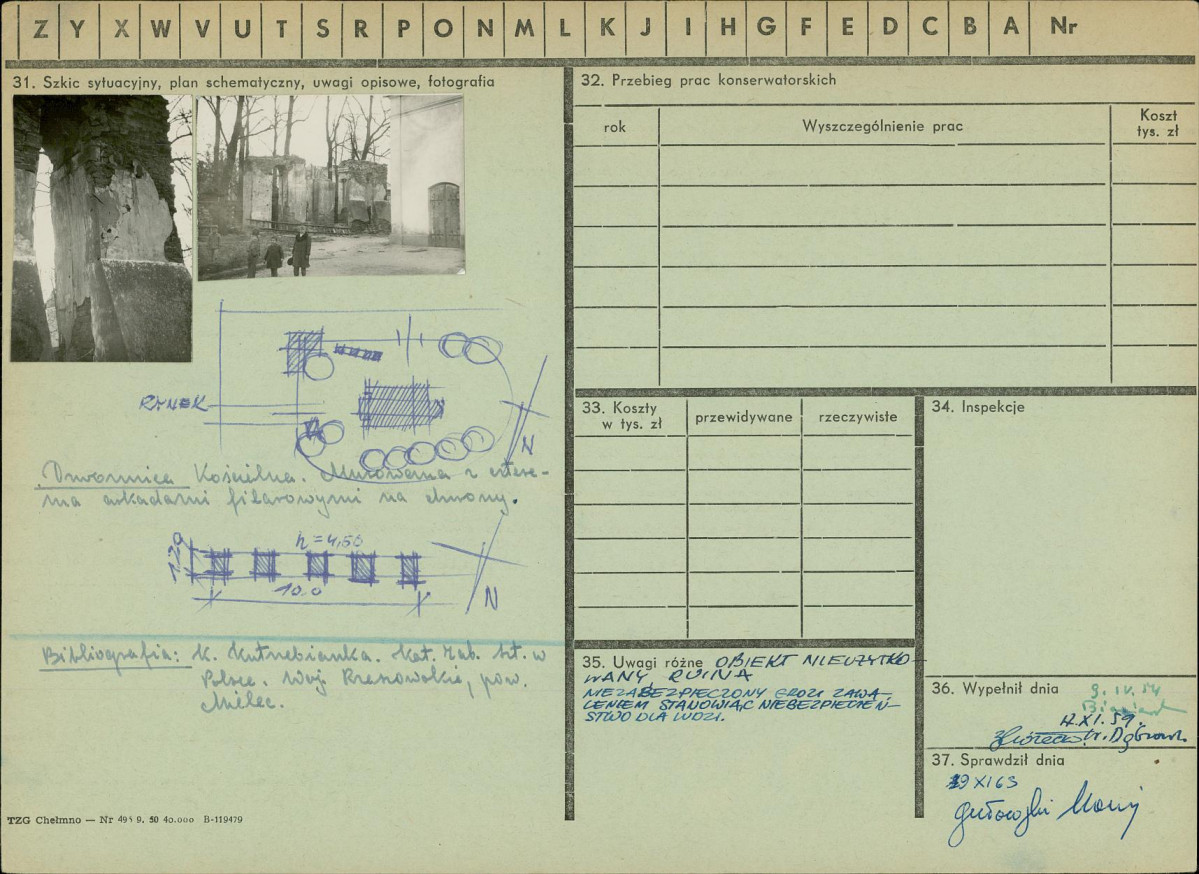 Z Y X W V U T S R P O N M L K J I H G F E D C B A Nr
31. Szkic sytuacyjny, plan schematyczny, uwagi opisowe, fotografia
RYNEK
N
Dzwonnica Kościelna. Murowana z cztere-
ma arkadami filarowymi na dzwony.
h = 4,50
10.0
N
Bibliografia: K. Kutrzebianka. Kat. Zab. Szt. w
Polsce. Woj. Rzeszowskie, pow.
Mielec.
TZG Chełmno — Nr 495 9. 50 40.000 B-119479
32. Przebieg prac konserwatorskich
rok
Wyszczególnienie prac
Koszt
tys. zł
33. Koszty
w tys. zł
przewidywane
rzeczywiste
34. Inspekcje
35. Uwagi różne OBIEKT NIEUŻYTKO
WANY, RUINA
NIEZABEZPIECZONY GROZI ZAWA-
LENIEM STANOWIĄC NIEBEZPIECZEŃ-
STWO DLA LUDZI.
36. Wypełnił dnia
XI.59.
37. Sprawdził dnia
XI 63